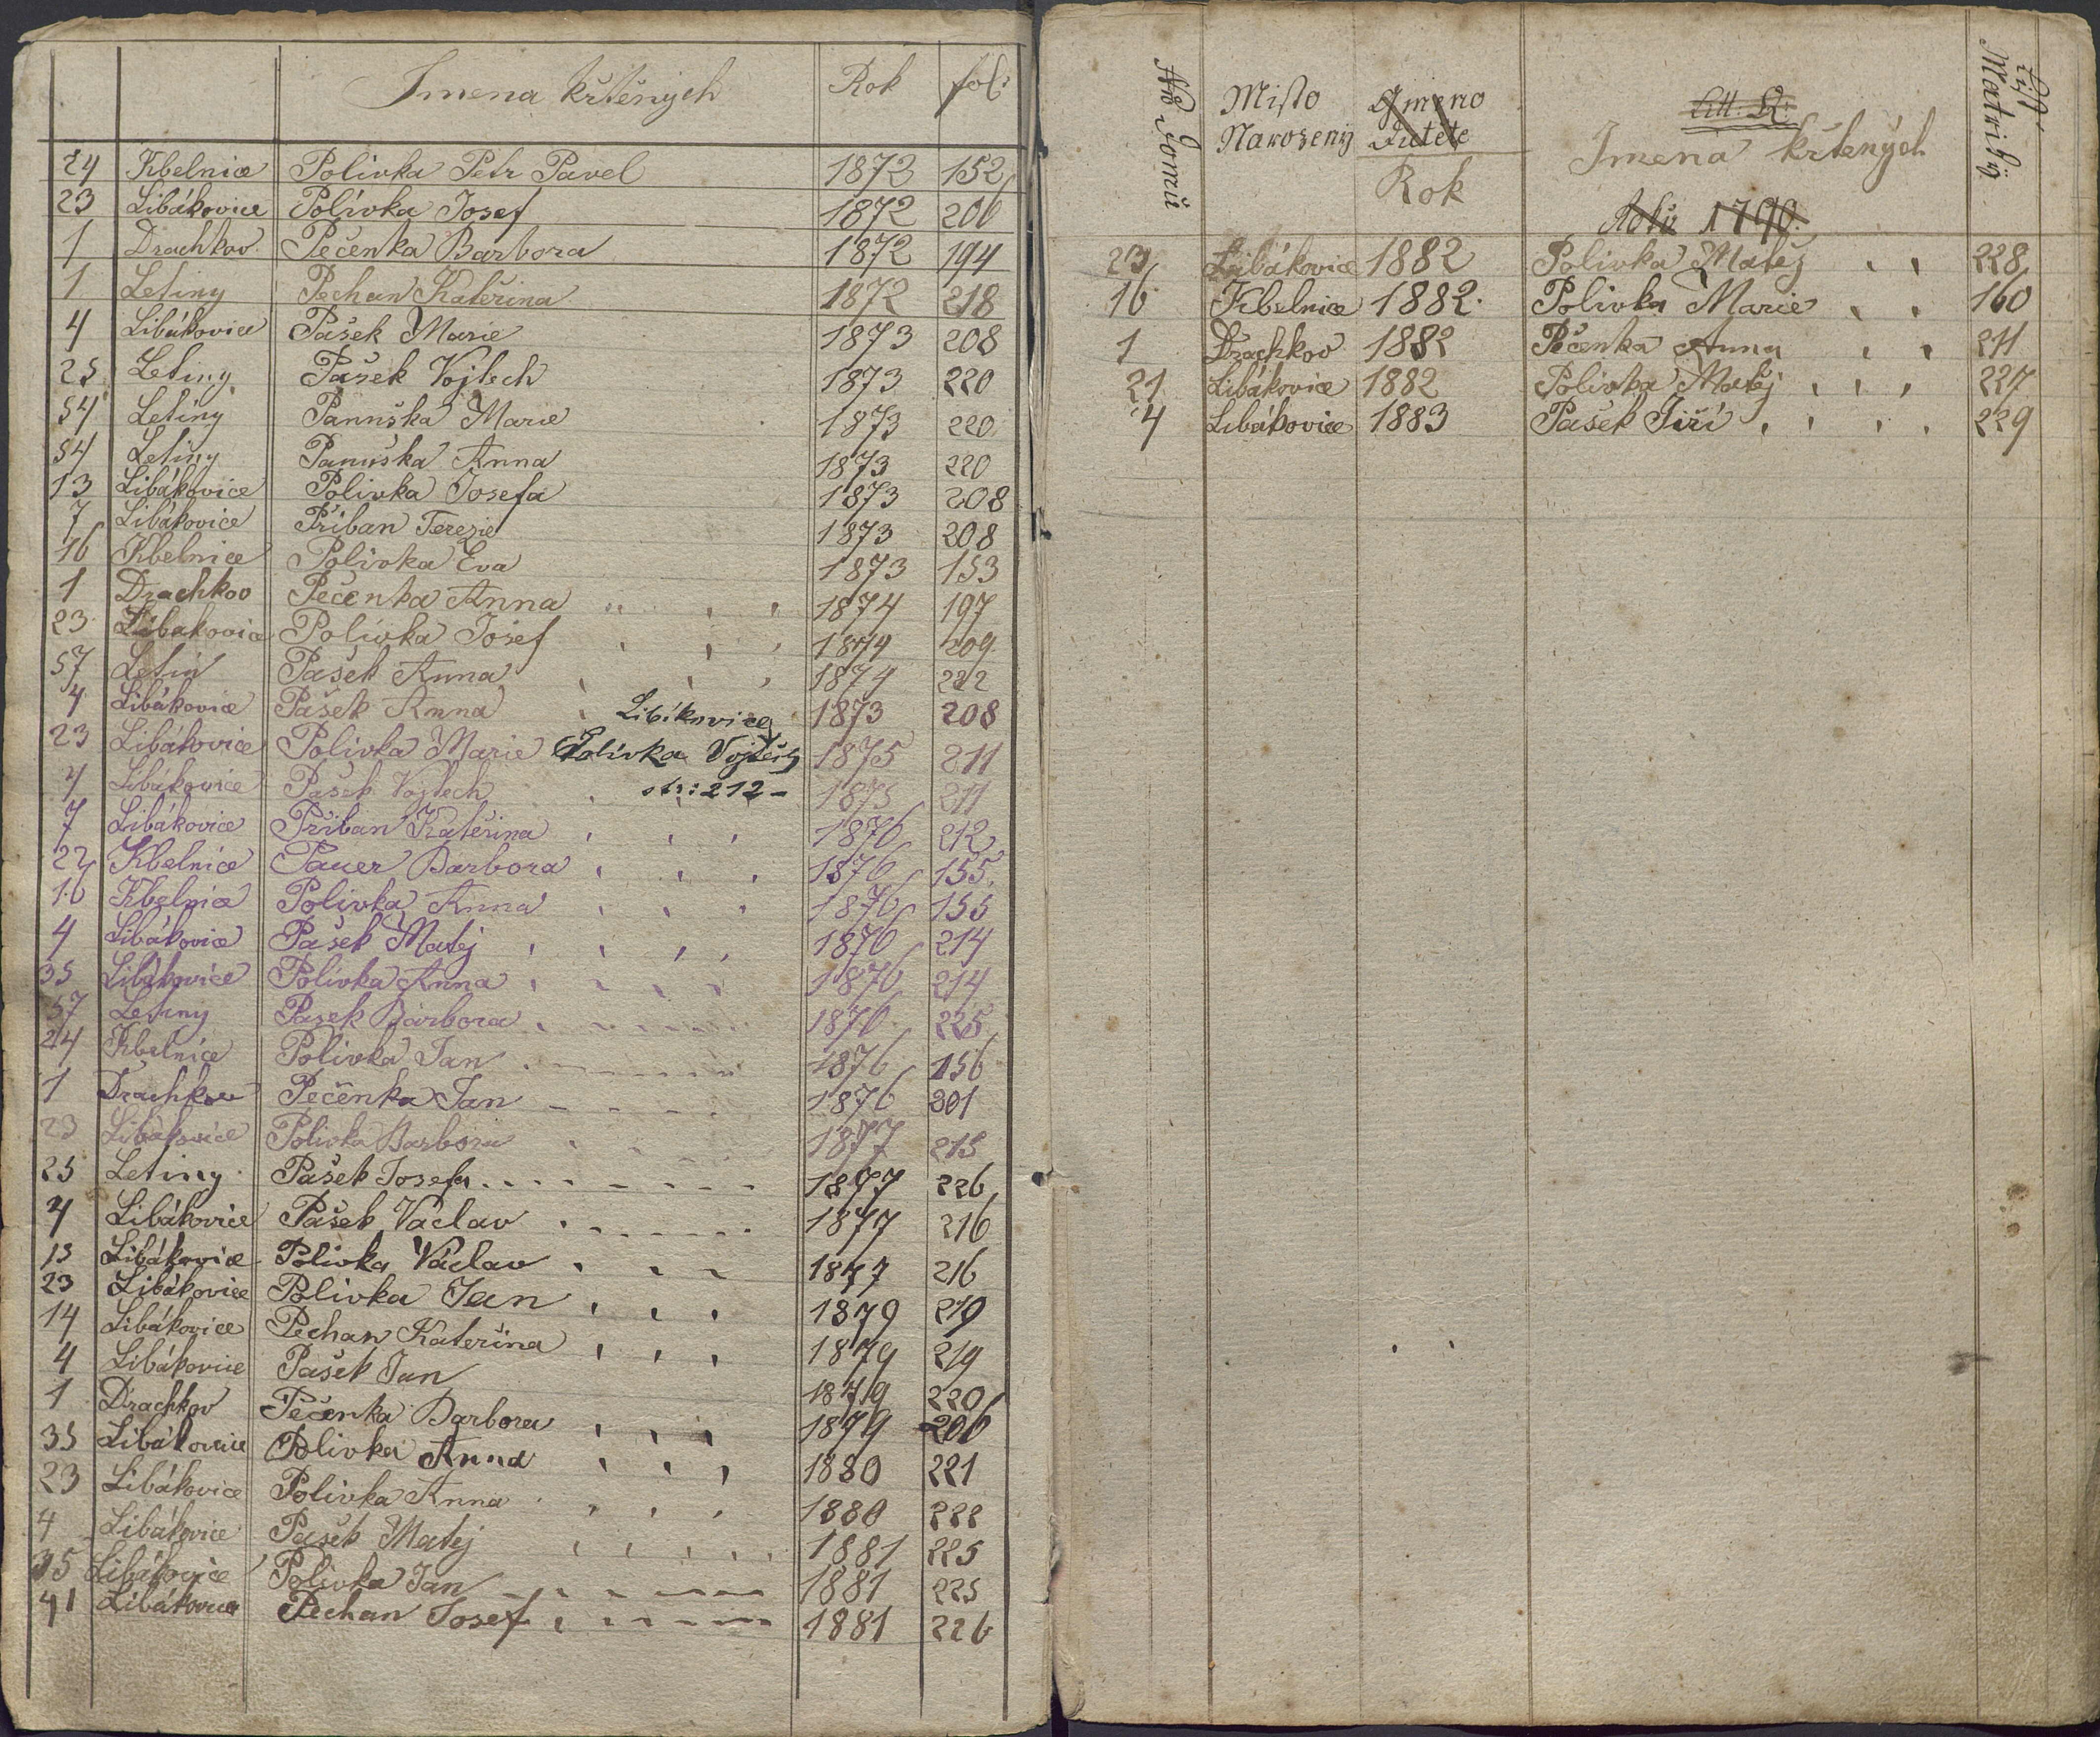 Jmena křtěných Rok fol:
24 Kbelnice Polívka Petr Pavel 1872 152
23 Libákovice Polívka Josef 1872 206
1 Drachkov Pečenka Barbora 1872 194
1 Letiny Pechan Kateřina 1872 218
4 Libákovice Pašek Marie 1873 208
25 Letiny Pašek Vojtech 1873 220
54 Letiny Panuška Marie 1873 220
54 Letiny Panuška Anna 1873 220
13 Libákovice Polivka Josefa 1873 208
7 Libákovice Přiban Terezie 1873 208
16 Kbelnice Polívka Eva 1873 153
1 Drachkov Pečenka Anna 1874 197
23 Libakovice Polívka Josef 1874 209
57 Letin Pašek Anna 1874 222
4 Libákovice Pašek Anna 1873 208
Libákovice
23 Libákovice Polivka Marie 1875 211
Polívka Vojtěch
4 Libákovice Pašek Vojtech 1875 211
str: 212 -
7 Libákovice Přiban Kateřina 1876 212
22 Kbelnice Pauer Barbora 1876 155
16 Kbelnice Polivka Anna 1876 155
4 Libákovice Pašek Matěj 1876 214
35 Libákovice Polívka Anna 1876 214
57 Letiny Pašek Barbora 1876 225
24 Kbelnice Polívka Jan 1876 156
1 Drachkov Pečenka Jan 1876 201
23 Libákovice Polivka Barbora 1877 215
25 Letiny Pašek Josefa 1877 226
4 Libákovice Pašek Václav 1877 216
13 Libákovice Polivka Václav 1877 216
23 Libákovice Polivka Jan 1879 219
14 Libákovice Pechan Kateřina 1879 219
4 Libákovice Pašek Jan 1879 220
1 Drachkov Pečenka Barbora 1879 206
35 Libákovice Polivka Anna 1880 221
23 Libákovice Polivka Anna 1880 222
4 Libákovice Pašek Matěj 1881 225
35 Libákovice Polivka Jan 1881 225
41 Libákovice Pechan Josef 1881 226
No Domů
Misto Narozenij
Jmeno Ditěte
Rok
Litt: P:
Jmena křtených
Roků 1790.
List Matriký
23 Libákovice 1882 Polivka Matěj 228
16 Kbelnice 1882 Polivka Marie 160
1 Drachkov 1882 Pečenka Anna 211
21 Libákovice 1882 Polivka Matěj 227
4 Libákovice 1883 Pašek Jiří 229